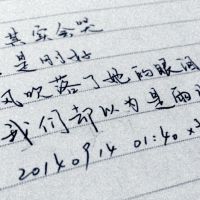 其实会哭
是刚好
风吹落了她的眼泪
我们却以为是雨
20140914 01:40